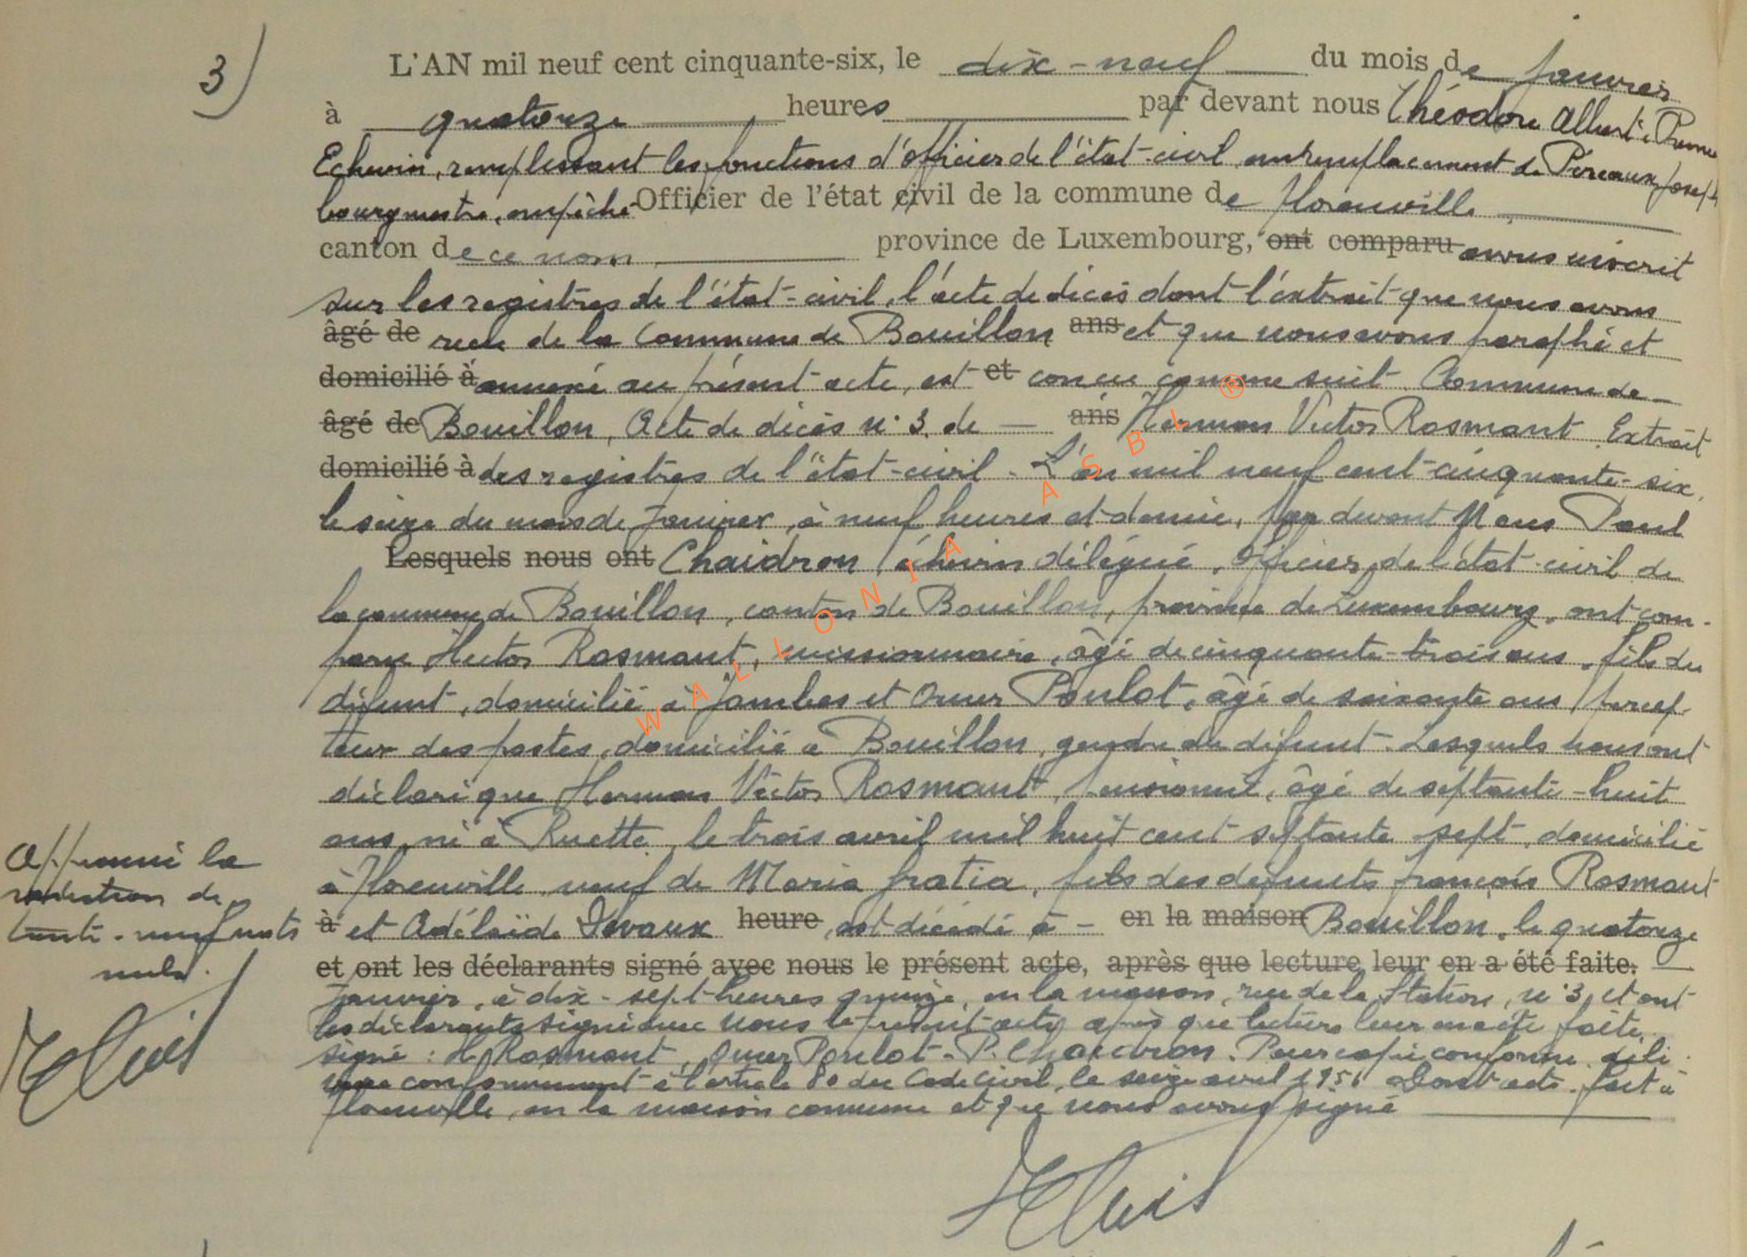 3)
L'AN mil neuf cent cinquante-six, le dix-neuf du mois de janvier
à quatorze heures par devant nous Théodore Albert, Premier
Echevin, remplissant les fonctions d'officier de l'état-civil en remplacement de Péreaux Joseph
bourgmestre, empêché Officier de l'état civil de la commune de Florenville
canton de ce nom province de Luxembourg, ont comparu avons inscrit
sur les registres de l'état-civil, l'acte de décès dont l'extrait que nous avons
âgé de reçu de la Commune de Bouillon ans et que nous avons paraphé et
domicilié à annexé au présent acte, est et conçu comme suit. Commune de
âgé de Bouillon, Acte de décès n° 3. de — ans Herman Victor Rosmant Extrait
domicilié à des registres de l'état-civil - L'an mil neuf cent cinquante-six,
le seize du mois de Janvier, à neuf heures et demie, par devant Nous Paul
Lesquels nous ont Chaidron, échevin délégué, officier de l'état-civil de
la commune de Bouillon, canton de Bouillon, province de Luxembourg, ont com-
paru Hector Rosmant, missionnaire, âgé de cinquante-trois ans, fils du
défunt, domicilié à Jambes et Omer Poulot, âgé de soixante ans, percep-
teur des postes, domicilié à Bouillon, gendre du défunt. Lesquels nous ont
déclaré que Herman Victor Rosmant, pensionné, âgé de septante-huit
ans, né à Ruette, le trois avril mil huit cent septante-sept, domicilié
à Florenville, veuf de Maria Gratia, fils des défunts François Rosmant
à et Adélaïde Devaux heure, est décédé à - en la maison Bouillon, le quatorze
et ont les déclarants signé avec nous le présent acte, après que lecture leur en a été faite.
Janvier, à dix-sept heures quinze, en la maison, rue de la Station, n° 3, et ont
les déclarants signé avec nous le présent acte, après que lecture leur en a été faite.
signé : H. Rosmant, Omer Poulot - P. Chaidron. Pour copie conforme déli-
vrée conformément à l'article 80 du Code Civil, le seize avril 1956 Dont acte. Fait à
Florenville, en la maison commune et que nous avons signé
Approuvé la
radiation de
trente-neuf mots
nuls.
WALLONIA ASBL ®